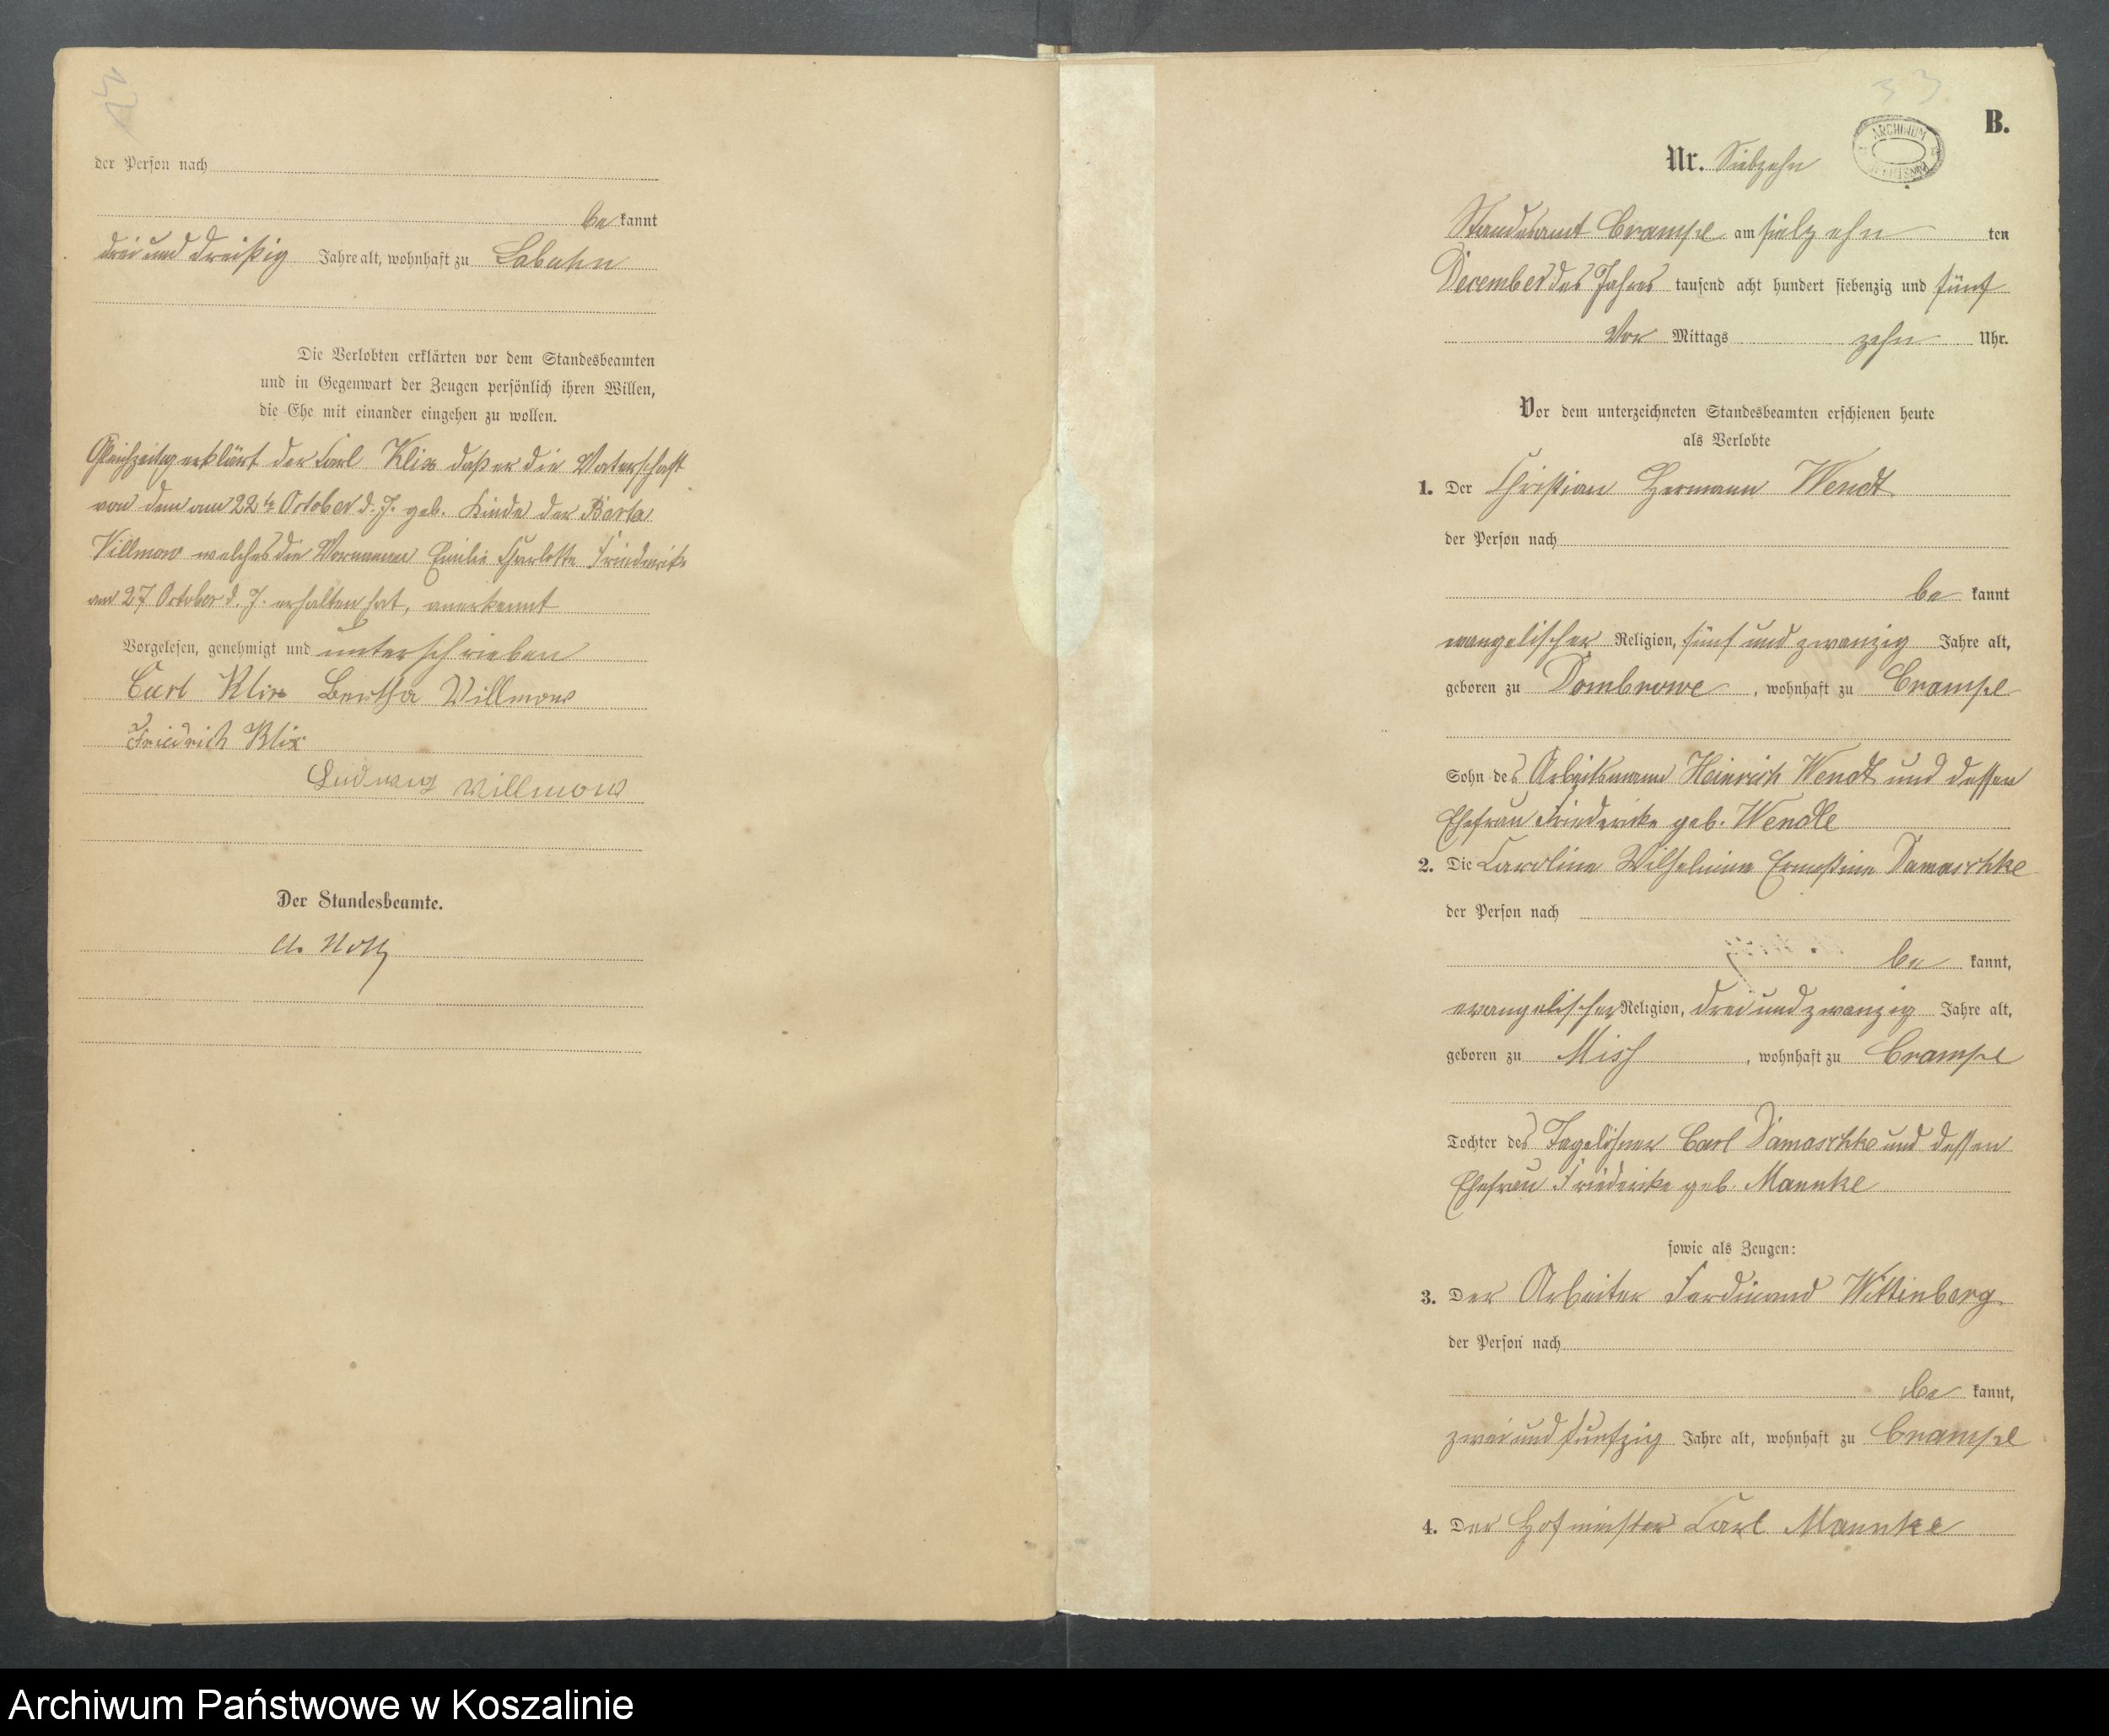 der Person nach
be kannt
drei und dreißig Jahre alt, wohnhaft zu Labuhn
Die Verlobten erklärten vor dem Standesbeamten
und in Gegenwart der Zeugen persönlich ihren Willen,
die Ehe mit einander eingehen zu wollen.
Gleichzeitig erklärt der Carl Klix daß er die Vaterschaft
von dem am 22ten October d. J. geb. Kinde der Berta
Villmow welches die Vornamen Emilie Charlotte Friederike
am 27 October d. J. erhalten hat, anerkennt
Vorgelesen, genehmigt und unterschrieben
Carl Klix Bertha Villmow
Friedrich Klix
Ludwig Villmow
Der Standesbeamte.
33
B.
ARCHIWUM
Nr. Siebzehn
Standesamt Crampe am siebzehn ten
December des Jahres tausend acht hundert siebenzig und fünf
Vor Mittags zehn Uhr.
Vor dem unterzeichneten Standesbeamten erschienen heute
als Verlobte
1. Der Christian Hermann Wendt
der Person nach
be kannt
evangelischer Religion, fünf und zwanzig Jahre alt,
geboren zu Dombrowe, wohnhaft zu Crampe
Sohn des Arbeitsmann Heinrich Wendt und dessen
Ehefrau Friedericke geb. Wendle
2. Die Caroline Wilhelmine Ernestine Damaschke
der Person nach
be kannt,
evangelischer Religion, drei und zwanzig Jahre alt,
geboren zu, wohnhaft zu Crampe
Tochter des Tagelöhner Carl Damaschke und dessen
Ehefrau Friedericke geb. Mannke
sowie als Zeugen:
3. Der Arbeiter Ferdinand Wittenberg
der Person nach
be kannt,
zwei und funfzig Jahre alt, wohnhaft zu Crampe
4. Der Hofmeister Carl Mannke
Archiwum Państwowe w Koszalinie